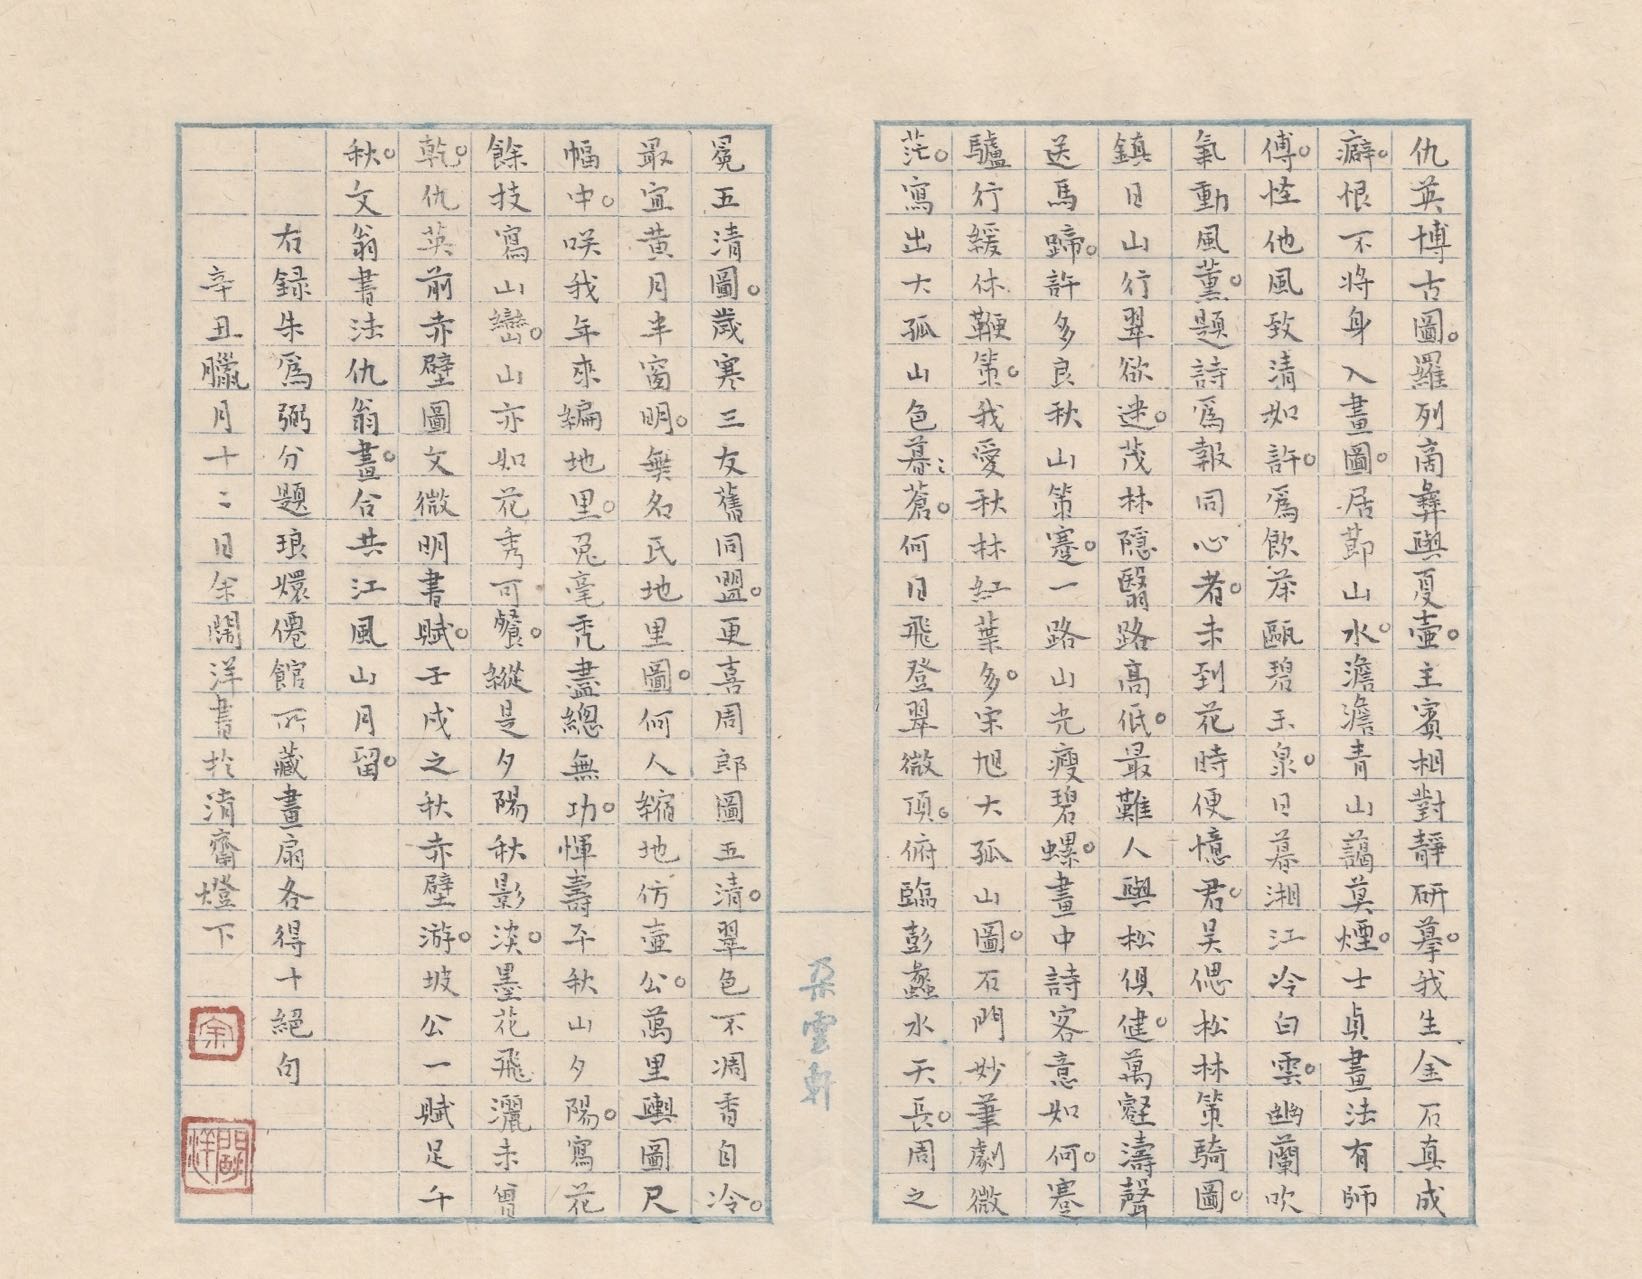 仇英博古圖。羅列商彝與夏壺。主賓相對靜研摹。我生金石真成
癖。恨不將身入畫圖。居節山水。澹澹青山藹莫煙。士貞畫法有師
傅。怪他風致清如許。爲飲茶甌碧玉泉。日暮湘江冷白雲。幽蘭吹
氣動風薰。題詩爲報同心者。未到花時便憶君。吴偲松林策騎圖。
鎮日山行翠欲迷。茂林隱翳路高低。最難人與松俱健。萬壑濤聲
送馬蹄。許多良秋山策蹇。一路山光瘦碧螺。畫中詩客意如何。蹇
驢行緩休鞭策。我愛秋林紅葉多。宋旭大孤山圖。石門妙筆劇微
茫。寫出大孤山色暮〻蒼。何日飛登翠微頂。俯臨彭蠡水天長。周之
冕五清圖。歲寒三友舊同盟。更喜周郎圖五清。翠色不凋香自冷。
最宜黄月半窗明。無名氏地里圖。何人縮地仿壺公。萬里輿圖尺
幅中。咲我年來編地里。兔毫秃盡總無功。惲壽平秋山夕陽。寫花
餘技寫山巒。山亦如花秀可餐。縱是夕陽秋影淡。墨花飛灑未曾
乾。仇英前赤壁圖文微明書賦。壬戌之秋赤壁游。坡公一賦足千
秋。文翁書法仇翁畫。合共江風山月留。
右録朱爲弼分題琅嬛僊館所藏畫扇各得十絕句
辛丑臘月十二日余闊洋書於清齋燈下
余
闊洋
朵雲軒